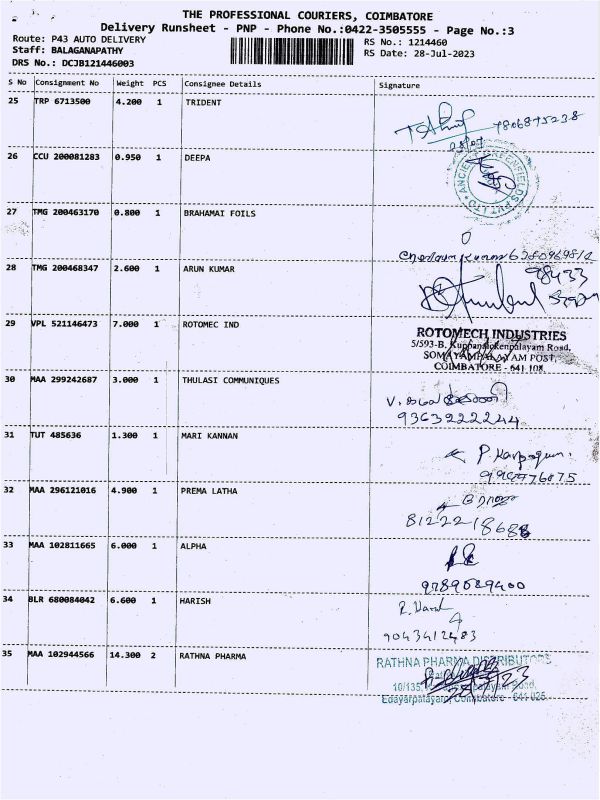 THE PROFESSIONAL COURIERS, COIMBATORE
Delivery Runsheet - PNP - Phone No.:0422-3505555 - Page No.:3
Route: P43 AUTO DELIVERY
RS No.: 1214460
Staff: BALAGANAPATHY
RS Date: 28-Jul-2023
DRS No.: DCJB121446003
S No Consignment No Weight PCS Consignee Details Signature
25 TRP 6713500 4.200 1 TRIDENT
7806875238
26 CCU 200081283 0.950 1 DEEPA
27 TMG 200463170 0.800 1 BRAHAMAI FOILS
28 TMG 200468347 2.600 1 ARUN KUMAR
98433
29 VPL 521146473 7.000 1 ROTOMEC IND
ROTOMECH INDUSTRIES
5/593-B, Kuppanaickenpalayam Road,
SOMAYAMPALAYAM POST,
COIMBATORE - 641 108
30 MAA 299242687 3.000 1 THULASI COMMUNIQUES
9363222244
31 TUT 485636 1.300 1 MARI KANNAN
32 MAA 296121016 4.900 1 PREMA LATHA
33 MAA 102811665 6.000 1 ALPHA
9789089400
34 BLR 680084042 6.600 1 HARISH
9043412483
35 MAA 102944566 14.300 2 RATHNA PHARMA
RATHNA PHARMA DISTRIBUTORS
10/135,
Edayarpalayam, Coimbatore - 641 025